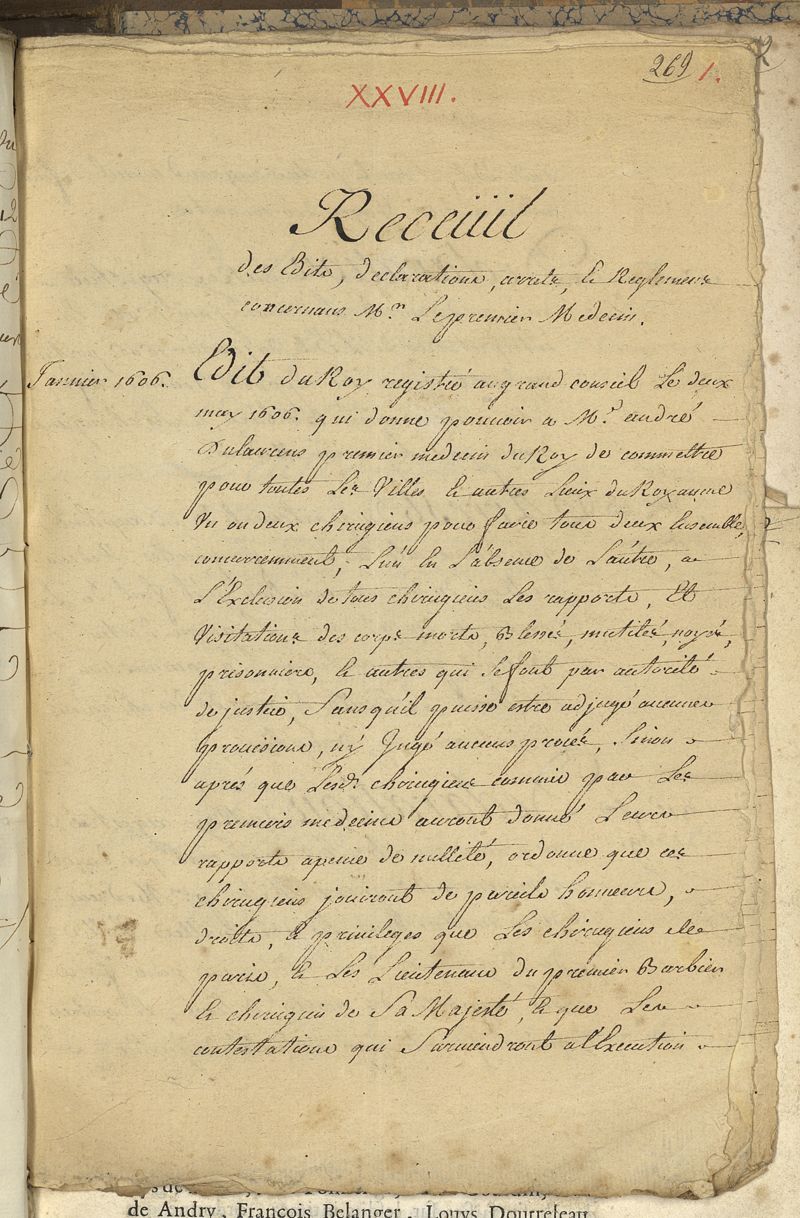 269 1.
XXVIII.
Receüil
des Edits, declarations, arrets, & Reglemens
concernans Mr. Le premier Medecin.
Janvier 1606.
Edit du Roy registré au grand conseil Le deux
may 1606. qui donne pouvoir a Mr. andré
Dulaurens premier medecin du Roy de commettre
pour toutes Les Villes & autres Lieux du Royaume
Un ou deux chirugiens pour faire tous deux Ensemble,
concurremment, L'un En L'absence de L'autre, a
L'Exclusion de tous chirugiens Les rapports, Et
Visitations des corps morts, Blessés, mutilés, noyés,
prisonniers, & autres qui se font par autorité
de justice, Sans qu'il puisse estre adjugé aucunes
provisions, ny Jugé aucuns procés, Sinon
aprés que Lesds. chirugiens commis par Les
premiers medecins auront donné Leurs
rapports a peine de nullité, ordonne que ces
chirugiens joüiront de pareils honneurs,
droits, & privileges que Les chirugiens de
paris, & Les Lieutenans du premier Barbier
& chirugien de Sa Majesté, & que Les
contestations qui Surviendront a l'Execution
de Andry, François Belanger, Louys Dourreleau